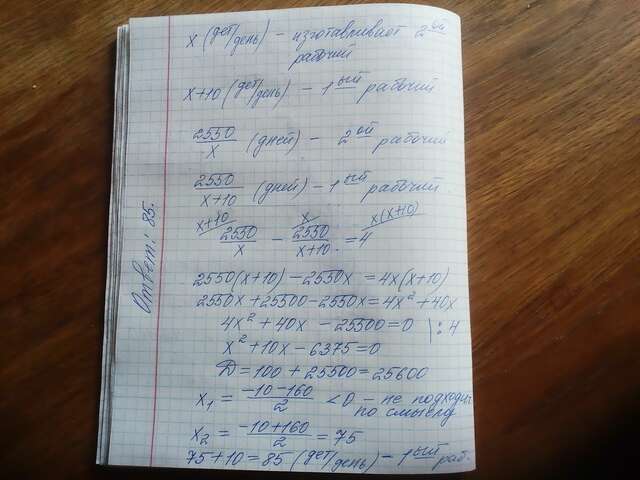 x (дет/день) – изготавливает 2ой
рабочий
x+10 (дет/день) – 1ый рабочий
2550/x (дней) – 2ой рабочий
2550/x+10 (дней) – 1ый рабочий
x+10/ 2550/x – x/ 2550/x+10 = 4 x(x+10)/
2550(x+10) – 2550x = 4x(x+10)
2550x + 25500 – 2550x = 4x² + 40x
4x² + 40x – 25500 = 0 | : 4
x² + 10x – 6375 = 0
D = 100 + 25500 = 25600
x₁ = -10-160/2 < 0 – не подходит
по смыслу
x₂ = -10+160/2 = 75
75+10 = 85 (дет/день) – 1ый раб.
Ответ: 85.